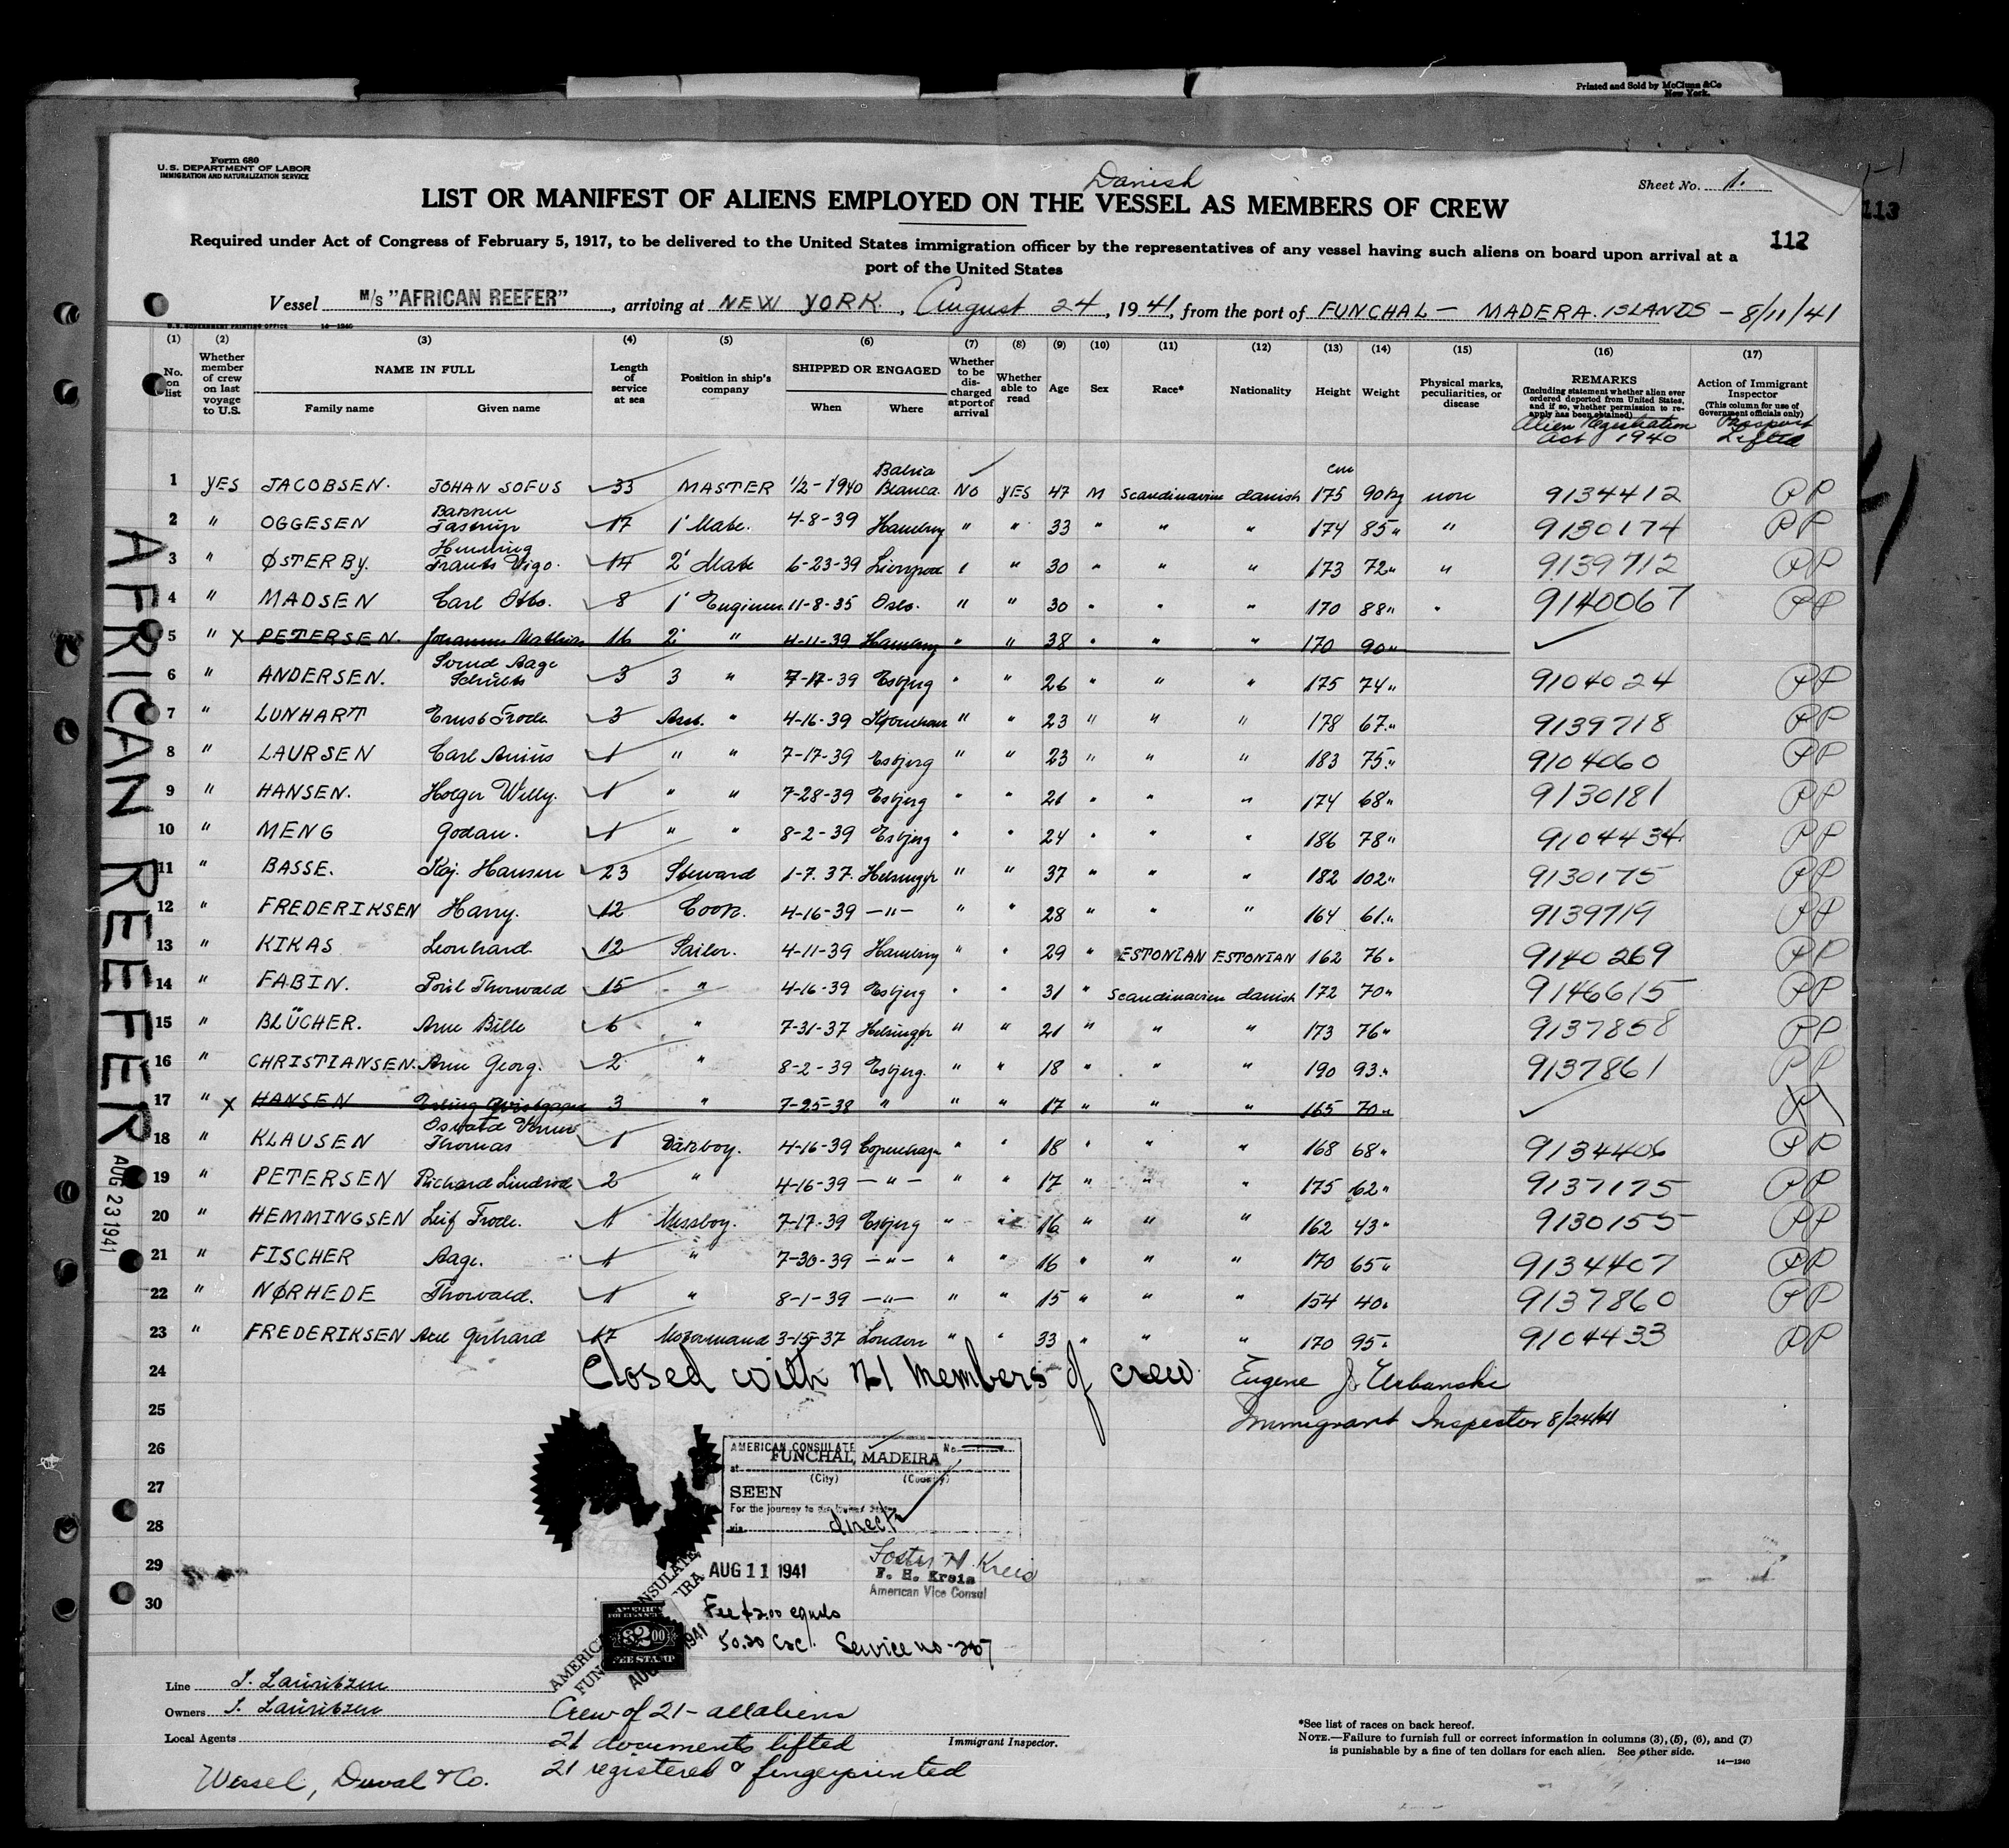 Printed and Sold by McClung &Co
New York.
Form 680
U.S. DEPARTMENT OF LABOR
IMMIGRATION AND NATURALIZATION SERVICE
Danish
Sheet No. 1.
LIST OR MANIFEST OF ALIENS EMPLOYED ON THE VESSEL AS MEMBERS OF CREW
113
112
Required under Act of Congress of February 5, 1917, to be delivered to the United States immigration officer by the representatives of any vessel having such aliens on board upon arrival at a
port of the United States
Vessel M/s "AFRICAN REEFER", arriving at NEW YORK, August 24, 1941, from the port of FUNCHAL — MADERA ISLANDS — 8/11/41
U.S. GOVERNMENT PRINTING OFFICE 14—1240
(1) (2) (3) (4) (5) (6) (7) (8) (9) (10) (11) (12) (13) (14) (15) (16) (17)
No. on list
Whether member of crew on last voyage to U.S.
NAME IN FULL
Family name Given name
Length of service at sea
Position in ship's company
SHIPPED OR ENGAGED
When Where
Whether to be discharged at port of arrival
Whether able to read
Age Sex Race* Nationality Height Weight
Physical marks, peculiarities, or disease
REMARKS
(Including statement whether alien ever ordered deported from United States, and if so, whether permission to reapply has been obtained)
Alien Registration
Act 1940
Action of Immigrant Inspector
(This column for use of Government officials only)
Passport
Lifted
1 YES JACOBSEN. JOHAN SOFUS 33 MASTER 1/2-1940 Bahia Blanca. NO YES 47 M Scandinavien danish 175 cm 90 kg non 9134412 PP
2 " OGGESEN Tastrup 17 1' Mate. 4-8-39 Hamburg " " 33 " " " 174 85 " " 9130174 PP
3 " ØSTERBY. Henning Frants Vigo. 14 2' Mate 6-23-39 Liverpool " 30 " " " 173 72 " " 9139712 PP
4 " MADSEN Carl Otto. 8 1' Engineer 11-8-35 Oslo. " " 30 " " " 170 88 " " 9140067 PP
5 " X PETERSEN. Johannes Mathias 16 2' " 4-11-39 Hamburg " " 38 " " " 170 90 "
6 " ANDERSEN. Svend Aage Schults 3 3 " 7-17-39 Esbjerg " " 26 " " " 175 74 " 9104024 PP
7 " LUNHART Ernst Frode. 3 Ass. " 4-16-39 " " 23 " " " 178 67 " 9139718 PP
8 " LAURSEN Carl Anius 1 " " 7-17-39 Esbjerg " " 23 " " " 183 75 " 9104060 PP
9 " HANSEN. Holger Willy. 1 " " 7-28-39 Esbjerg " " 21 " " " 174 68 " 9130181 PP
10 " MENG Godau. 1 " " 8-2-39 Esbjerg " " 24 " " " 186 78 " 9104434 PP
11 " BASSE. Kaj. Hansen 23 Steward 1-7.37. Helsingør " " 37 " " " 182 102 " 9130175 PP
12 " FREDERIKSEN Harry. 12 Cook. 4-16-39 —"— " " 28 " " " 164 61 " 9139719 PP
13 " KIKAS Leonhard 12 Sailor. 4-11-39 Hamburg " " 29 " ESTONIAN ESTONIAN 162 76 " 9140269 PP
14 " FABIN. Poul Thorwald 15 " 4-16-39 Esbjerg " " 31 " Scandinavien danish 172 70 " 9146615 PP
15 " BLÜCHER. Arne Bille 6 " 7-31-37 Helsingør " " 21 " " " 173 76 " 9137858 PP
16 " CHRISTIANSEN. Arne Georg. 2 " 8-2-39 Esbjerg. " " 18 " " " 190 93 " 9137861 PP
17 " X HANSEN Erling 3 " 7-25-38 " " " 17 " " " 165 70 "
18 " KLAUSEN Osvald Verner Thomas 1 Däkboy. 4-16-39 Copenhagen " " 18 " " " 168 68 " 9134406 PP
19 " PETERSEN Richard Lindrod 2 " 4-16-39 —"— " " 17 " " " 175 62 " 9137175 PP
20 " HEMMINGSEN Leif Frode. 1 Messboy. 7-17-39 Esbjerg " " 16 " " " 162 43 " 9130155 PP
21 " FISCHER Aage. 1 " 7-30-39 —"— " " 16 " " " 170 65 " 9134407 PP
22 " NØRHEDE Thorvald. 1 " 8-1-39 —"— " " 15 " " " 154 40 " 9137860 PP
23 " FREDERIKSEN Axel Gerhard 17 Motormand 3-15-37 London " " 33 " " " 170 95 " 9104433 PP
24 Closed with 21 members of crew Eugene J. Urbanski
25 Immigrant Inspector 8/24/41
26
27
28
29
30
AFRICAN REEFER
AUG 23 1941
AMERICAN CONSULATE No.
at FUNCHAL, MADEIRA
(City) (Country)
SEEN
For the journey to the United States
via direct
AUG 11 1941
Foster H. Kreis
F. H. Kreis
American Vice Consul
AMERICAN CONSULATE
FUNCHAL, MADEIRA
AUG 1941
AMERICAN
FOREIGN SERVICE
$2.00
FEE STAMP
Fee $2.00 equals
50.20 Esc. Service no-267
Line J. Lauritzen
Owners J. Lauritzen
Local Agents
Wessel, Duval & Co.
Crew of 21 – all aliens
21 documents lifted
21 registered & fingerprinted
Immigrant Inspector.
*See list of races on back hereof.
NOTE.—Failure to furnish full or correct information in columns (3), (5), (6), and (7)
is punishable by a fine of ten dollars for each alien. See other side.
14—1240